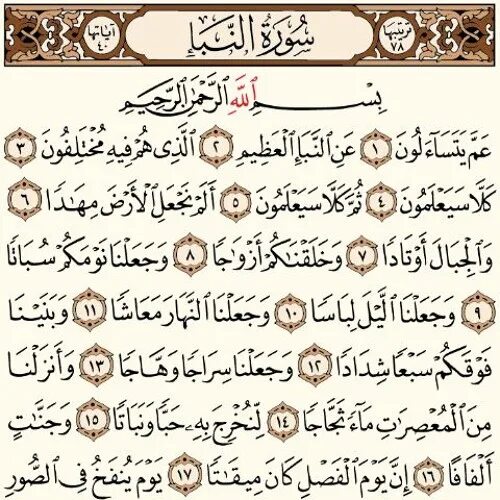 ترتيبها ٧٨ سُورَةُ النَّبَإِ آياتها ٤٠
بِسْمِ اللَّهِ الرَّحْمَٰنِ الرَّحِيمِ
عَمَّ يَتَسَاءَلُونَ ١ عَنِ النَّبَإِ الْعَظِيمِ ٢ الَّذِي هُمْ فِيهِ مُخْتَلِفُونَ ٣
كَلَّا سَيَعْلَمُونَ ٤ ثُمَّ كَلَّا سَيَعْلَمُونَ ٥ أَلَمْ نَجْعَلِ الْأَرْضَ مِهَٰدًا ٦
وَالْجِبَالَ أَوْتَادًا ٧ وَخَلَقْنَاكُمْ أَزْوَاجًا ٨ وَجَعَلْنَا نَوْمَكُمْ سُبَاتًا
٩ وَجَعَلْنَا اللَّيْلَ لِبَاسًا ١٠ وَجَعَلْنَا النَّهَارَ مَعَاشًا ١١ وَبَنَيْنَا
فَوْقَكُمْ سَبْعًا شِدَادًا ١٢ وَجَعَلْنَا سِرَاجًا وَهَّاجًا ١٣ وَأَنزَلْنَا
مِنَ الْمُعْصِرَاتِ مَاءً ثَجَّاجًا ١٤ لِّنُخْرِجَ بِهِ حَبًّا وَنَبَاتًا ١٥ وَجَنَّاتٍ
أَلْفَافًا ١٦ إِنَّ يَوْمَ الْفَصْلِ كَانَ مِيقَاتًا ١٧ يَوْمَ يُنفَخُ فِي الصُّورِ